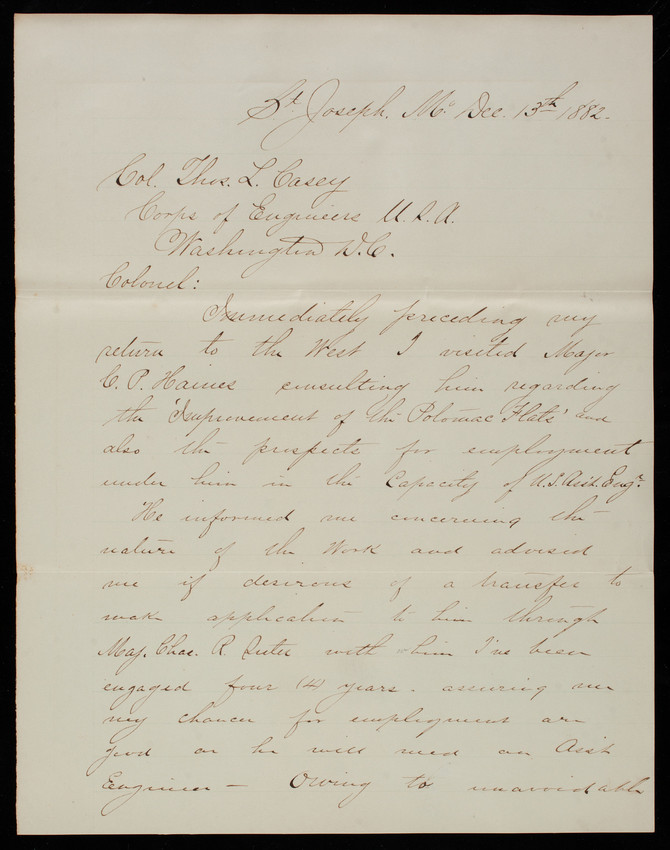 St. Joseph. Mo. Dec. 13th 1882.
Col. Thos. L. Casey
Corps of Engineers U.S.A.
Washington D.C.
Colonel:
Immediately preceding my
return to the West I visited Major
C. P. Haines consulting him regarding
the 'Improvement of the Potomac Flats' and
also the prospects for employment
under him in the Capacity of U.S. Asst. Engr.
He informed me concerning the
nature of the Work and advised
me if desirous of a transfer to
make application to him through
Maj. Chas. R. Suter with whom I've been
engaged four (4) years. assuring me
my chances for employment are
good as he will need an Asst
Engineer — Owing to unavoidable